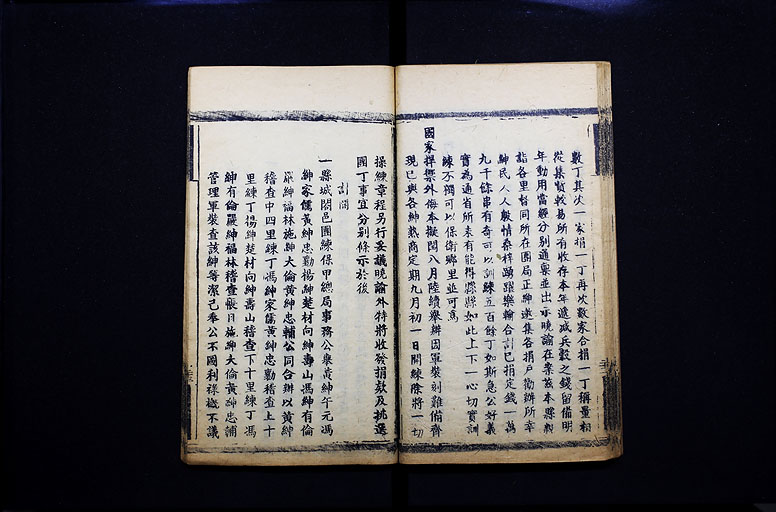 數丁其次一家捐一丁再次數家合捐一丁稱量相
從集貲較易所有收存本年遞減兵穀之錢留備明
年動用當經分別通稟並出示曉諭在案茲本縣科
諧各里督同所在團局正紳邀集各捐戶勸辦所幸
紳民人人敵愾情桑梓踴躍樂輸合計已捐定錢一萬
九千餘串有奇可以訓練五百餘丁如斯急公好義
實為通省所未有能得縣縣如此上下一心切實訓
練不獨可以保衛鄉里並可為
國家捍禦外侮本擬閏八月陸續舉辦因軍裝刻難備齊
現已與各紳熟商定期九月初一日開練除將一切
操練章程另行妥議曉諭外特將收發捐欵及挑選
團丁事宜分別條示於後
計開
一縣城閤邑團練保甲總局事務公舉黃紳午元馮
紳家儒黃紳忠勳楊紳楚材向紳壽山馮紳有倫
羅紳福林施紳大倫黃紳忠輔公同合辦以黃紳
稽查中四里練丁馮紳家儒黃紳忠勳稽查上十
里練丁楊紳楚材向紳壽山稽查下十里練丁馮
紳有倫羅紳福林稽查賬目施紳大倫黃紳忠輔
管理軍裝查該紳等潔己奉公不圖利祿概不議